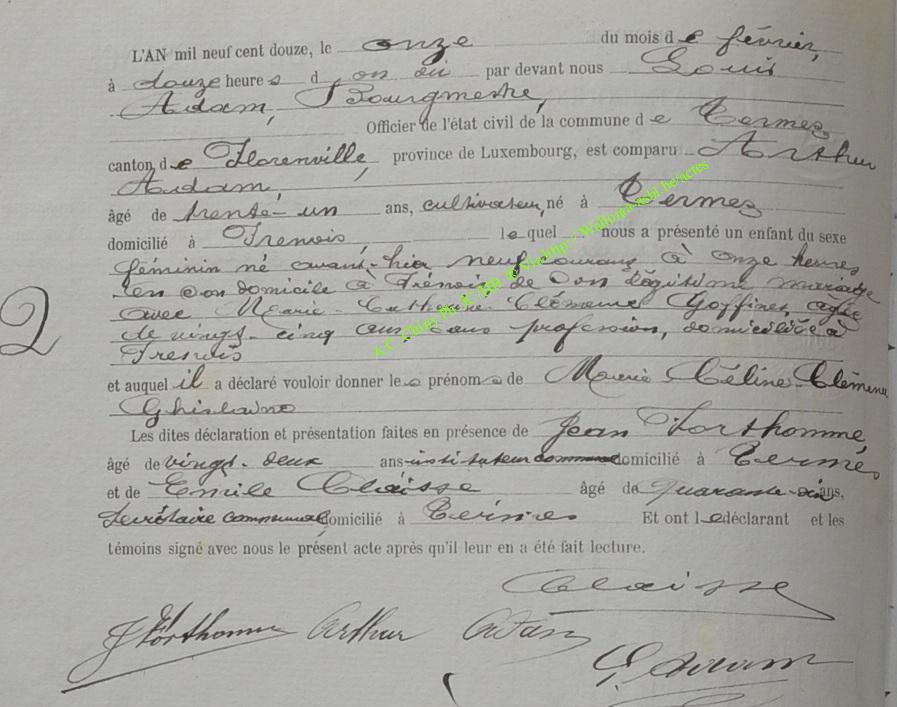 L'AN mil neuf cent douze, le onze du mois de février,
à douze heures d par devant nous Louis
Adam, Bourgmestre,
Officier de l'état civil de la commune de Termes
canton de Florenville, province de Luxembourg, est comparu Arthur
Adam,
âgé de trente-un ans, cultivateur, né à Termes
domicilié à Frenois, lequel nous a présenté un enfant du sexe
féminin né avant-hier neuf courant à onze heures
en son domicile à Frénois de son légitime mariage
avec Marie-Catherine-Clémence Goffinet, âgée
de vingt-cinq ans sans profession, domiciliée à
Frenois
2
et auquel il a déclaré vouloir donner les prénoms de Marie-Céline-Clémence
Ghislaine
Les dites déclaration et présentation faites en présence de Jean Forthomme,
âgé de vingt-deux ans instituteur communal domicilié à Termes
et de Emile Claisse âgé de quarante-six ans,
secrétaire communal domicilié à Termes Et ont le déclarant et les
témoins signé avec nous le présent acte après qu'il leur en a été fait lecture.
Claisse
J Forthomme Arthur Adam
L. Adam